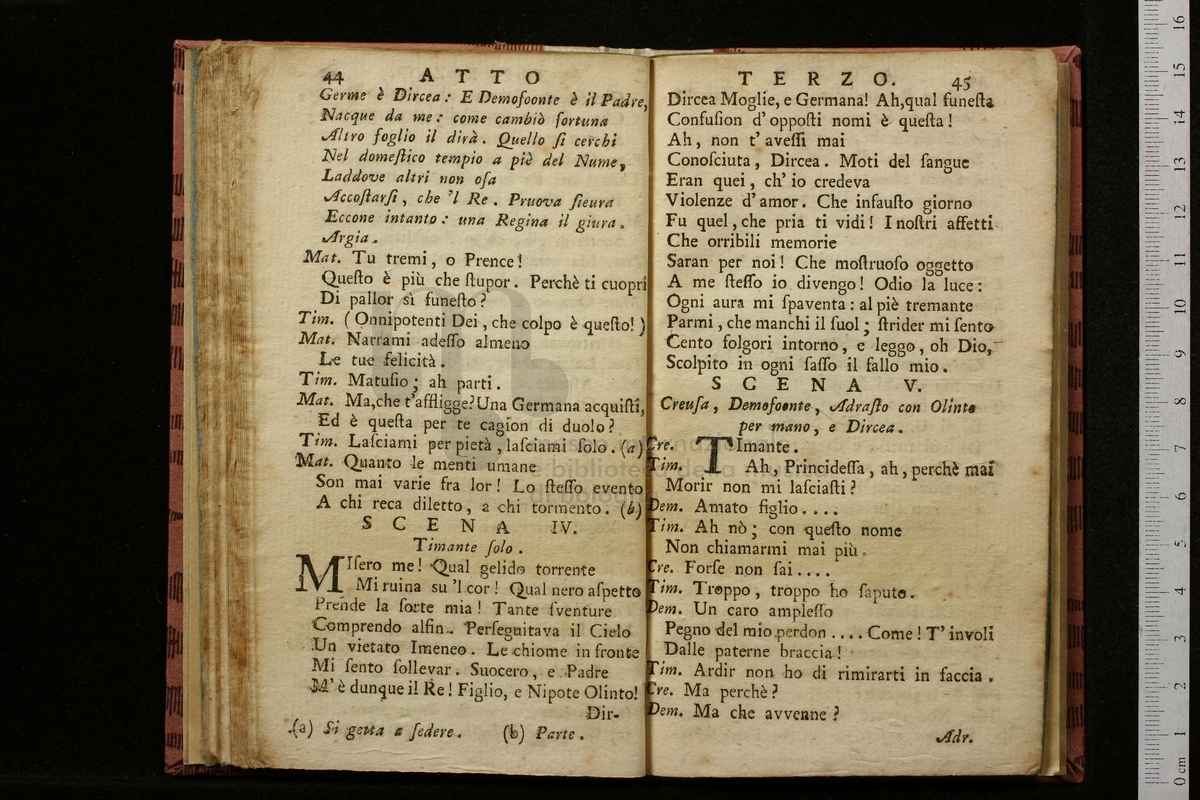 44 ATTO
Germe è Dircea: E Demofoonte è il Padre,
Nacque da me: come cambiò fortuna
Altro foglio il dirà. Quello ſi cerchi
Nel domeſtico tempio a piè del Nume,
Laddove altri non oſa
Accoſtarſi, che 'l Re. Pruova ſieura
Eccone intanto: una Regina il giura.
Argia.
Mat. Tu tremi, o Prence!
Queſto è più che ſtupor. Perchè ti cuopri
Di pallor sì funeſto?
Tim. (Onnipotenti Dei, che colpo è queſto!)
Mat. Narrami adeſſo almeno
Le tue felicità.
Tim. Matuſio; ah parti.
Mat. Ma, che t'affligge? Una Germana acquiſti,
Ed è queſta per te cagion di duolo?
Tim. Laſciami per pietà, laſciami ſolo. (a)
Mat. Quanto le menti umane
Son mai varie fra lor! Lo ſteſſo evento
A chi reca diletto, a chi tormento. (b)
SCENA IV.
Timante ſolo.
MIſero me! Qual gelido torrente
Mi ruina su 'l cor! Qual nero aſpetto
Prende la ſorte mia! Tante ſventure
Comprendo alfin. Perſeguitava il Cielo
Un vietato Imeneo. Le chiome in fronte
Mi ſento ſollevar. Suocero, e Padre
M' è dunque il Re! Figlio, e Nipote Olinto!
Dir-
(a) Si getta a ſedere. (b) Parte.
TERZO. 45
Dircea Moglie, e Germana! Ah, qual funeſta
Confuſion d' oppoſti nomi è queſta!
Ah, non t' aveſſi mai
Conoſciuta, Dircea. Moti del ſangue
Eran quei, ch' io credeva
Violenze d' amor. Che infauſto giorno
Fu quel, che pria ti vidi! I noſtri affetti
Che orribili memorie
Saran per noi! Che moſtruoſo oggetto
A me ſteſſo io divengo! Odio la luce:
Ogni aura mi ſpaventa: al piè tremante
Parmi, che manchi il ſuol; ſtrider mi ſento
Cento folgori intorno, e leggo, oh Dio,
Scolpito in ogni ſaſſo il fallo mio.
SCENA V.
Creuſa, Demofoonte, Adraſto con Olinto
per mano, e Dircea.
Cre. TImante.
Tim. Ah, Principeſſa, ah, perchè mai
Morir non mi laſciaſti?
Dem. Amato figlio....
Tim. Ah nò; con queſto nome
Non chiamarmi mai più.
Cre. Forſe non ſai....
Tim. Troppo, troppo ho ſaputo.
Dem. Un caro ampleſſo
Pegno del mio perdon.... Come! T' involi
Dalle paterne braccia!
Tim. Ardir non ho di rimirarti in faccia.
Cre. Ma perchè?
Dem. Ma che avvenne?
Adr.